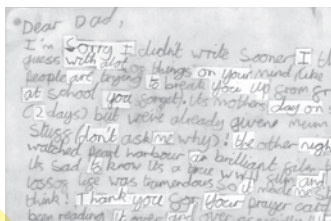 Dear Dad,
I'm Sorry I didnt write Sooner I
guess with alot of things on your mind like
people are trying to break you up from
at school you forget). Its mothers day on
(2 days) but we've already given mum
Stuff (don't ask me why)! the other night
watched pearl harbour an brilliant film
its sad to know its a true story and
loss of life was tremendous so it
think! Thank you for your prayer card
been reading it over and over